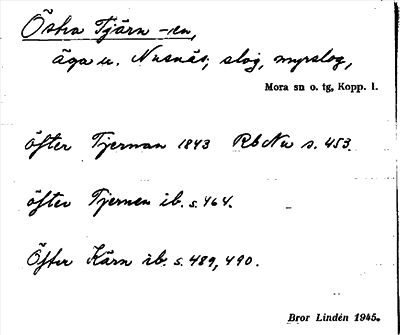 Östra Tjärn -en,
äga u. Nusnäs; slog, myrslog,
Mora sn o. tg, Kopp. l.
öfter Tjernan 1843 RbNu s. 453.
öfter Tjernen ib. s. 464.
Öfter Kärn ib. s. 489, 490.
Bror Lindén 1945.